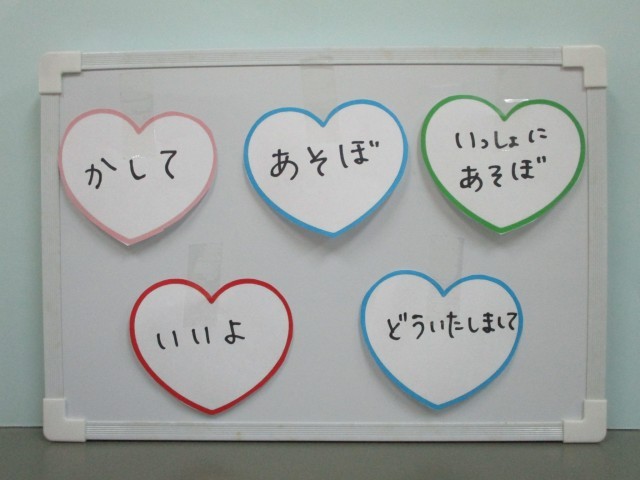 かして
あそぼ
いっしょに
あそぼ
いいよ
どういたしまして